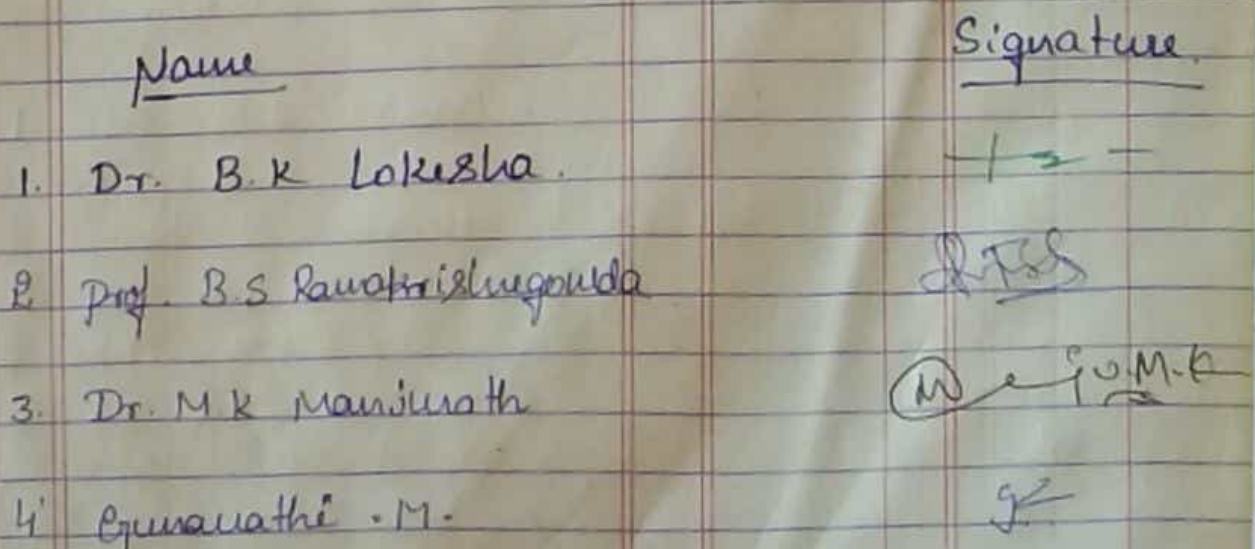 Name Signature
1. Dr. B.K Lokesha.
2 Prof. B.S Ramakrishnegowda
3. Dr. M K Manjunath M.K
4 Gunavathi .M.